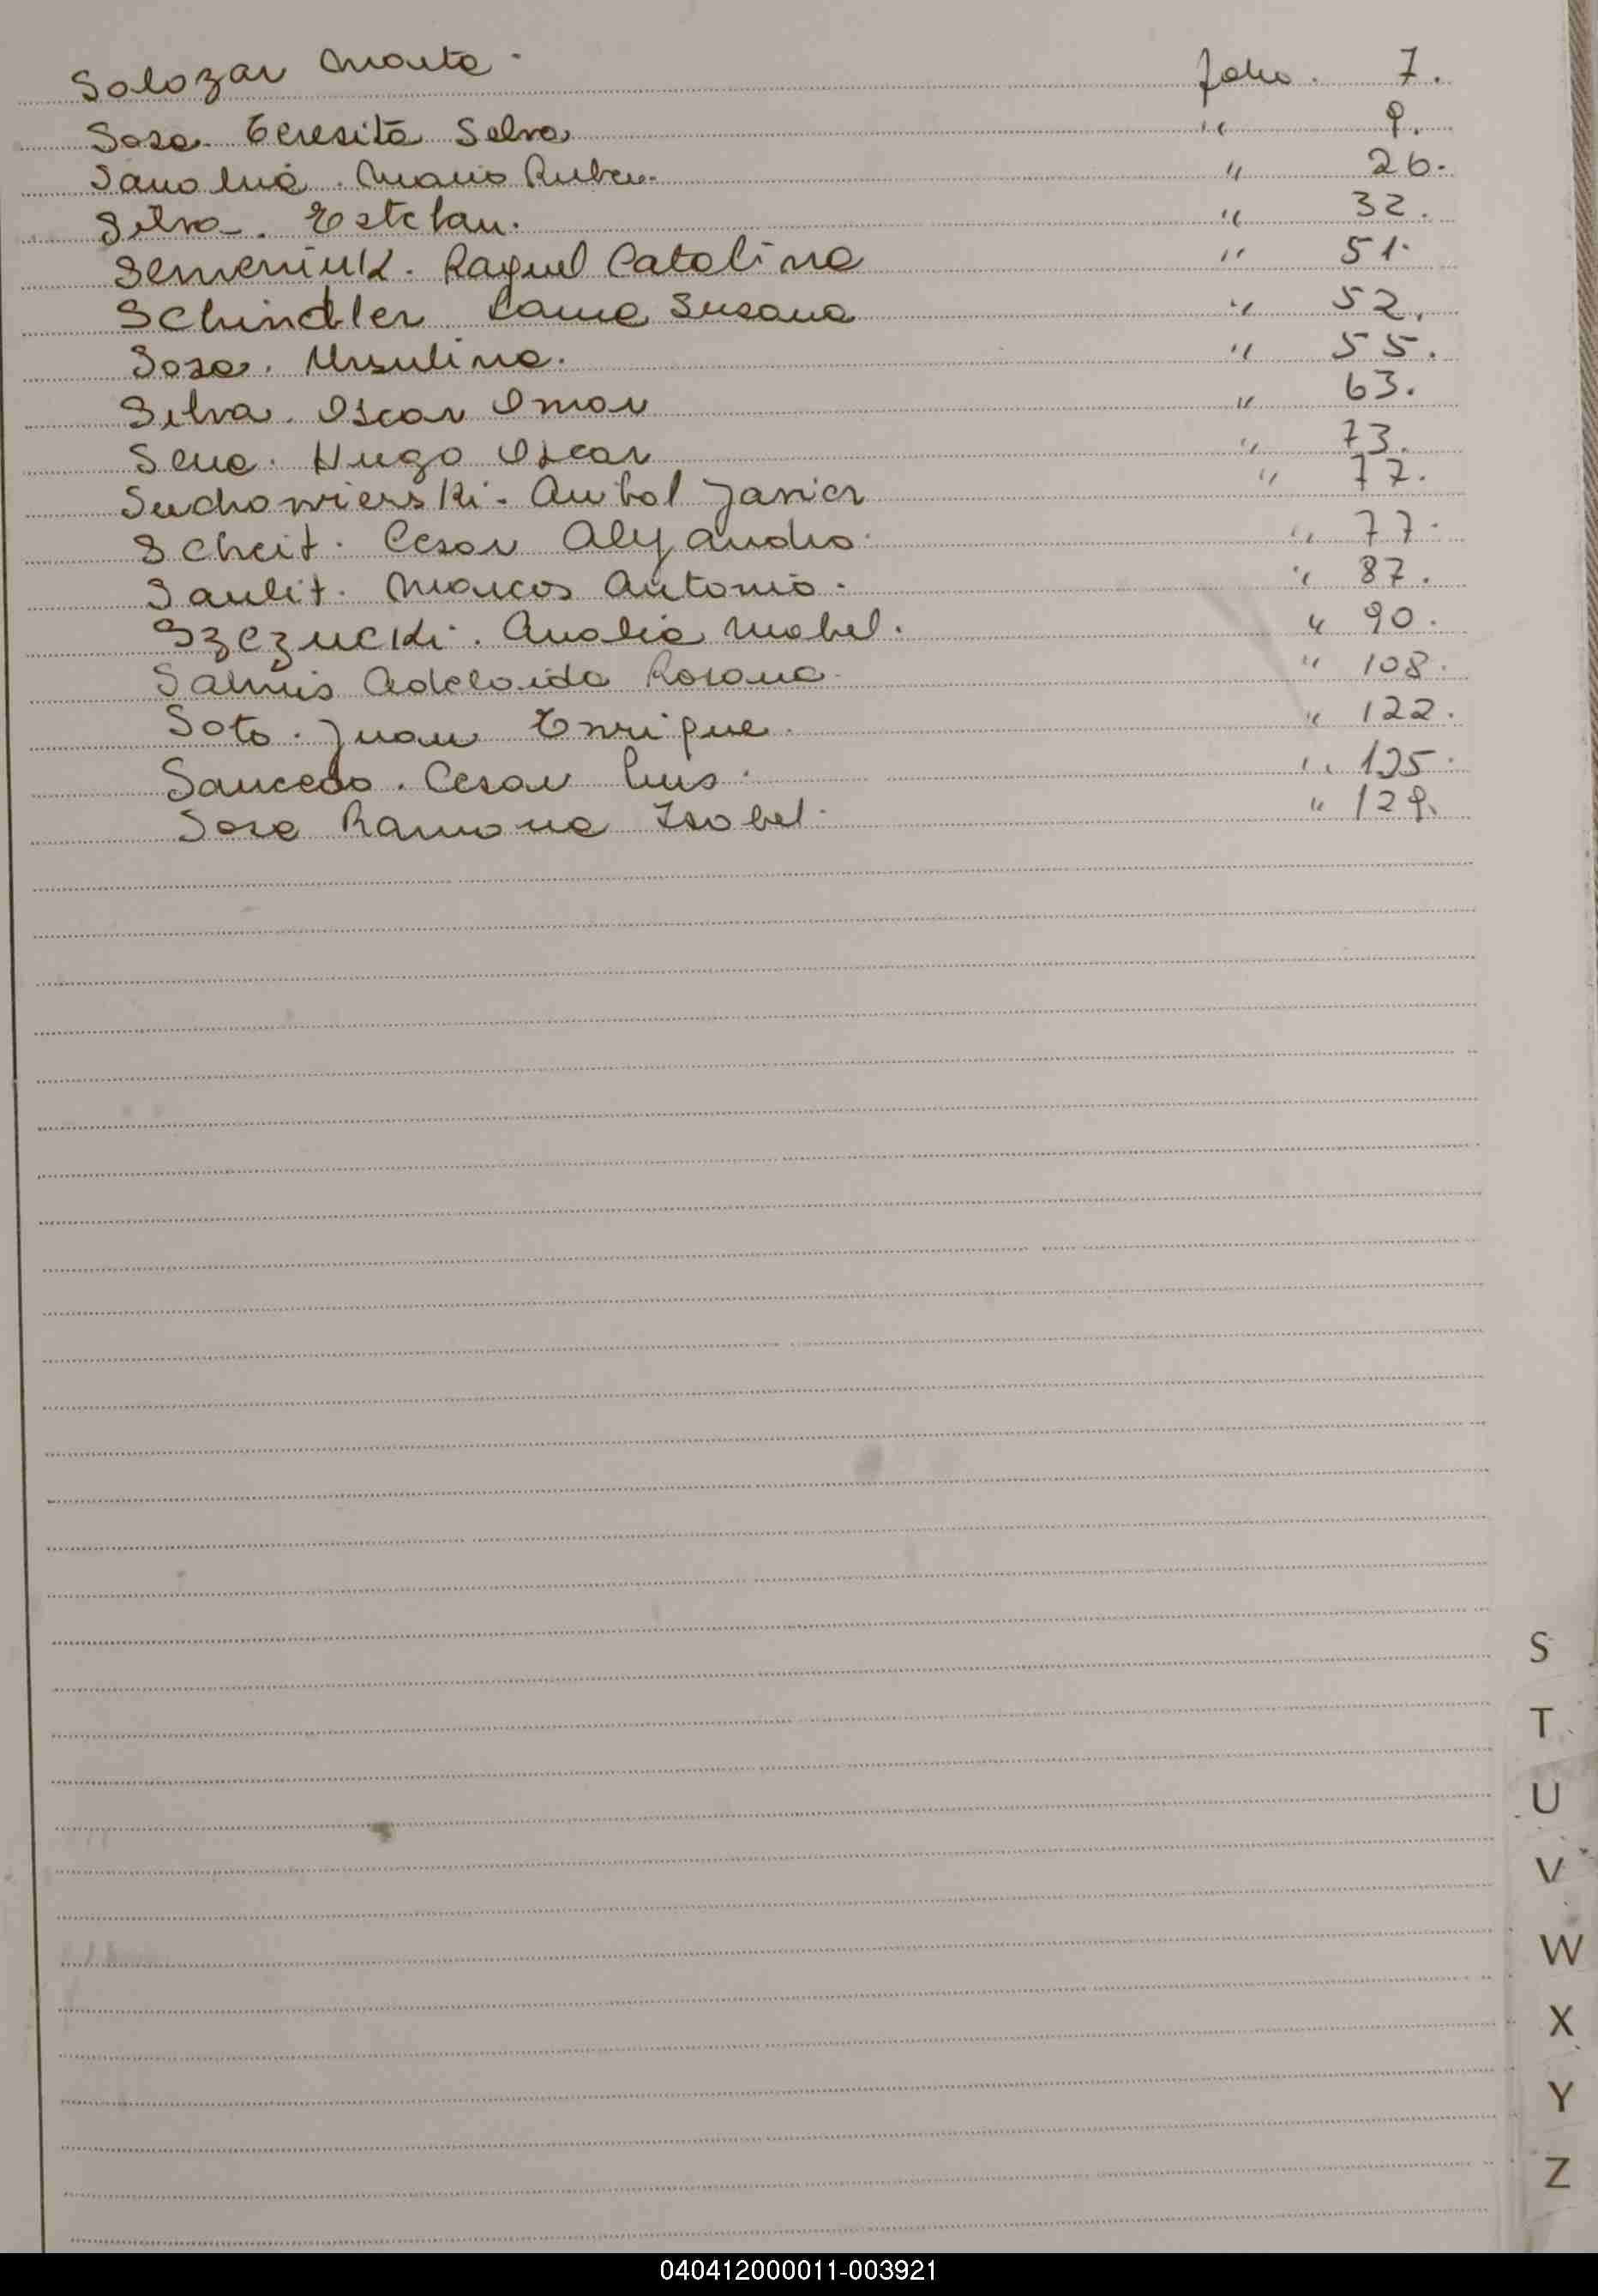 Salazar Marta. folio. 7.
Sosa. Teresita Selva " 9.
Sanabria. Mario Ruben. " 26.
Silva. Esteban. " 32.
Semeniuk. Raquel Catalina " 51.
Schindler Susana " 52.
Sosa. Ursulina. " 55.
Silva. Oscar Omar " 63.
Sena. Hugo Oscar " 73.
Suchowierski. Anibal Javier " 77.
Scheit. Cesar Alejandro. " 77.
Saulit. Marcos Antonio. " 87.
Szczucki. Analia Mabel. " 90.
Adelaida Rosana. " 108.
Soto. Juan Enrique. " 122.
Saucedo. Cesar Luis. " 125.
Sosa Ramona Isabel. " 129.
S
T
U
V
W
X
Y
Z
040412000011-003921